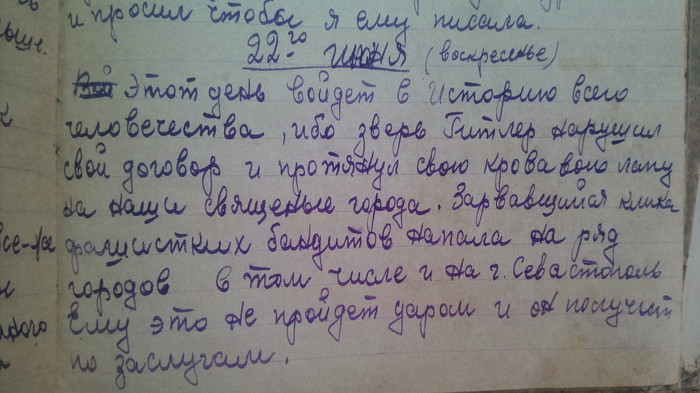 и просил чтобы я ему писала.
ыше.
22-го июня (воскресенье)
Этот день войдет в Историю всего
человечества, ибо зверь Гитлер нарушил
свой договор и протянул свою кровавого лапу
на наши священые города. Зарвавщийся клика
все-же фашистких бандитов напала на ряд
городов в том числе и на г. Севастополь
Ему это не пройдет даром и он получит
по заслугам.